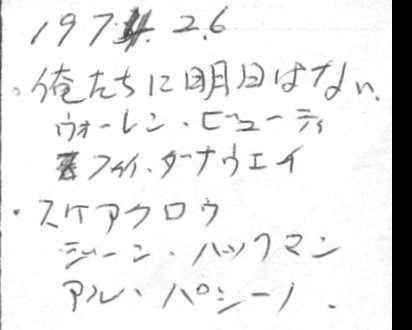 1974. 2.6
。俺たちに明日はない.
ウォーレン・ビューティ
フェイ・ダーナウェイ
・スケアクロウ
ジーン・ハックマン
アル・パシーノ.